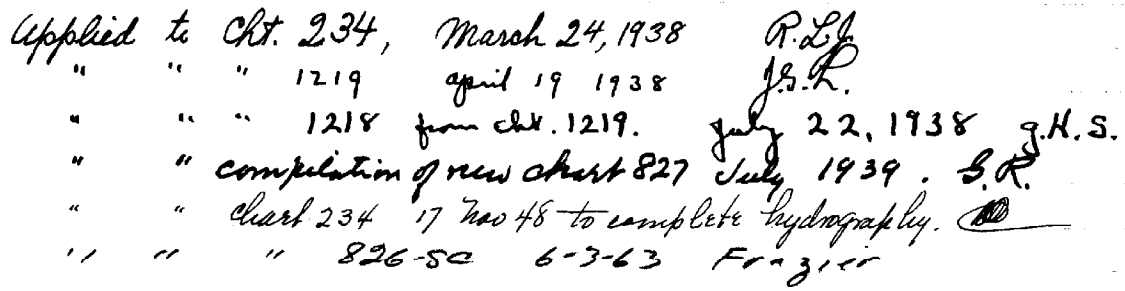 Applied to Cht. 234, March 24, 1938 R.L.J.
" " " 1219 april 19 1938 J.S.L.
" " " 1218 from cht. 1219. July 22, 1938 g.H.S.
" " compilation of new chart 827 July 1939. G.R.
" " Chart 234 17 Nov 48 to complete hydrography.
" " " 826-SC 6-3-63 Frazier